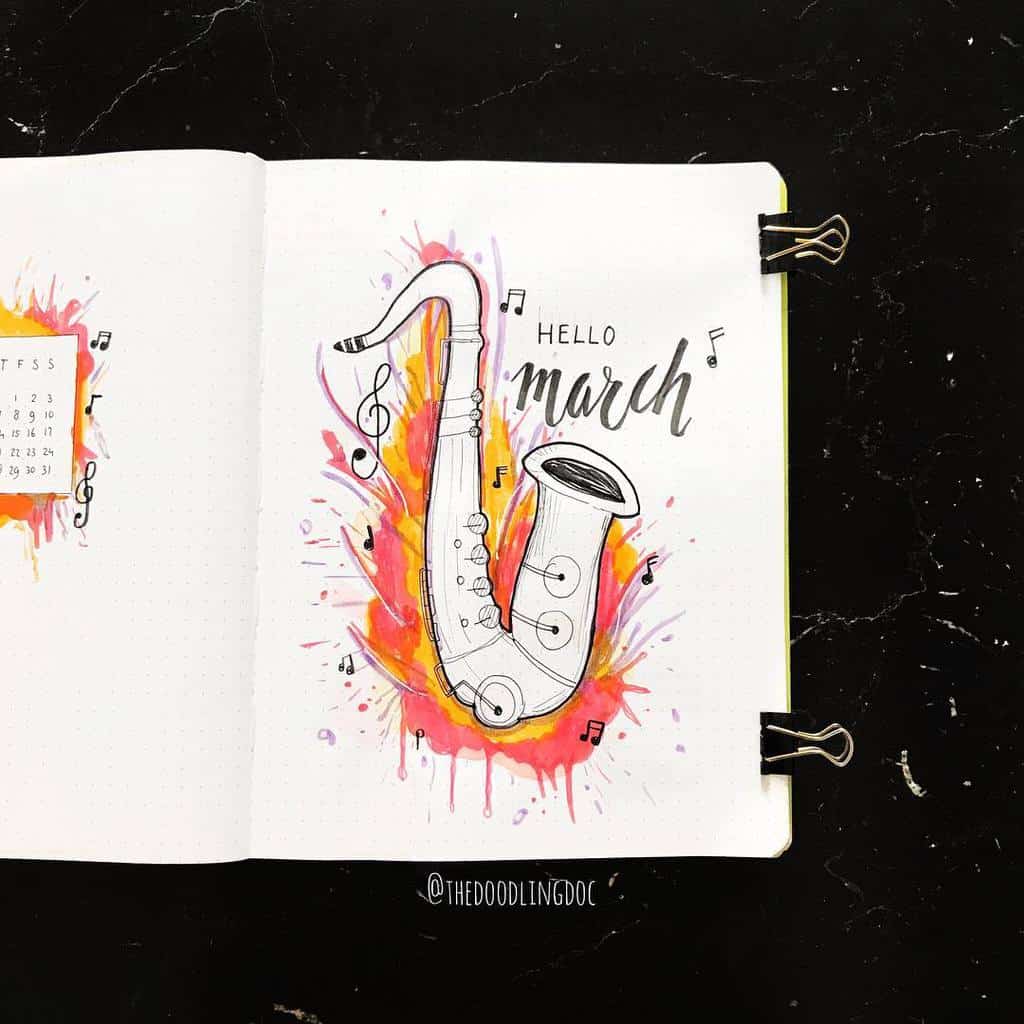 T F S S
1 2 3
8 9 10
15 16 17
22 23 24
29 30 31
HELLO
march
@THEDOODLINGDOC